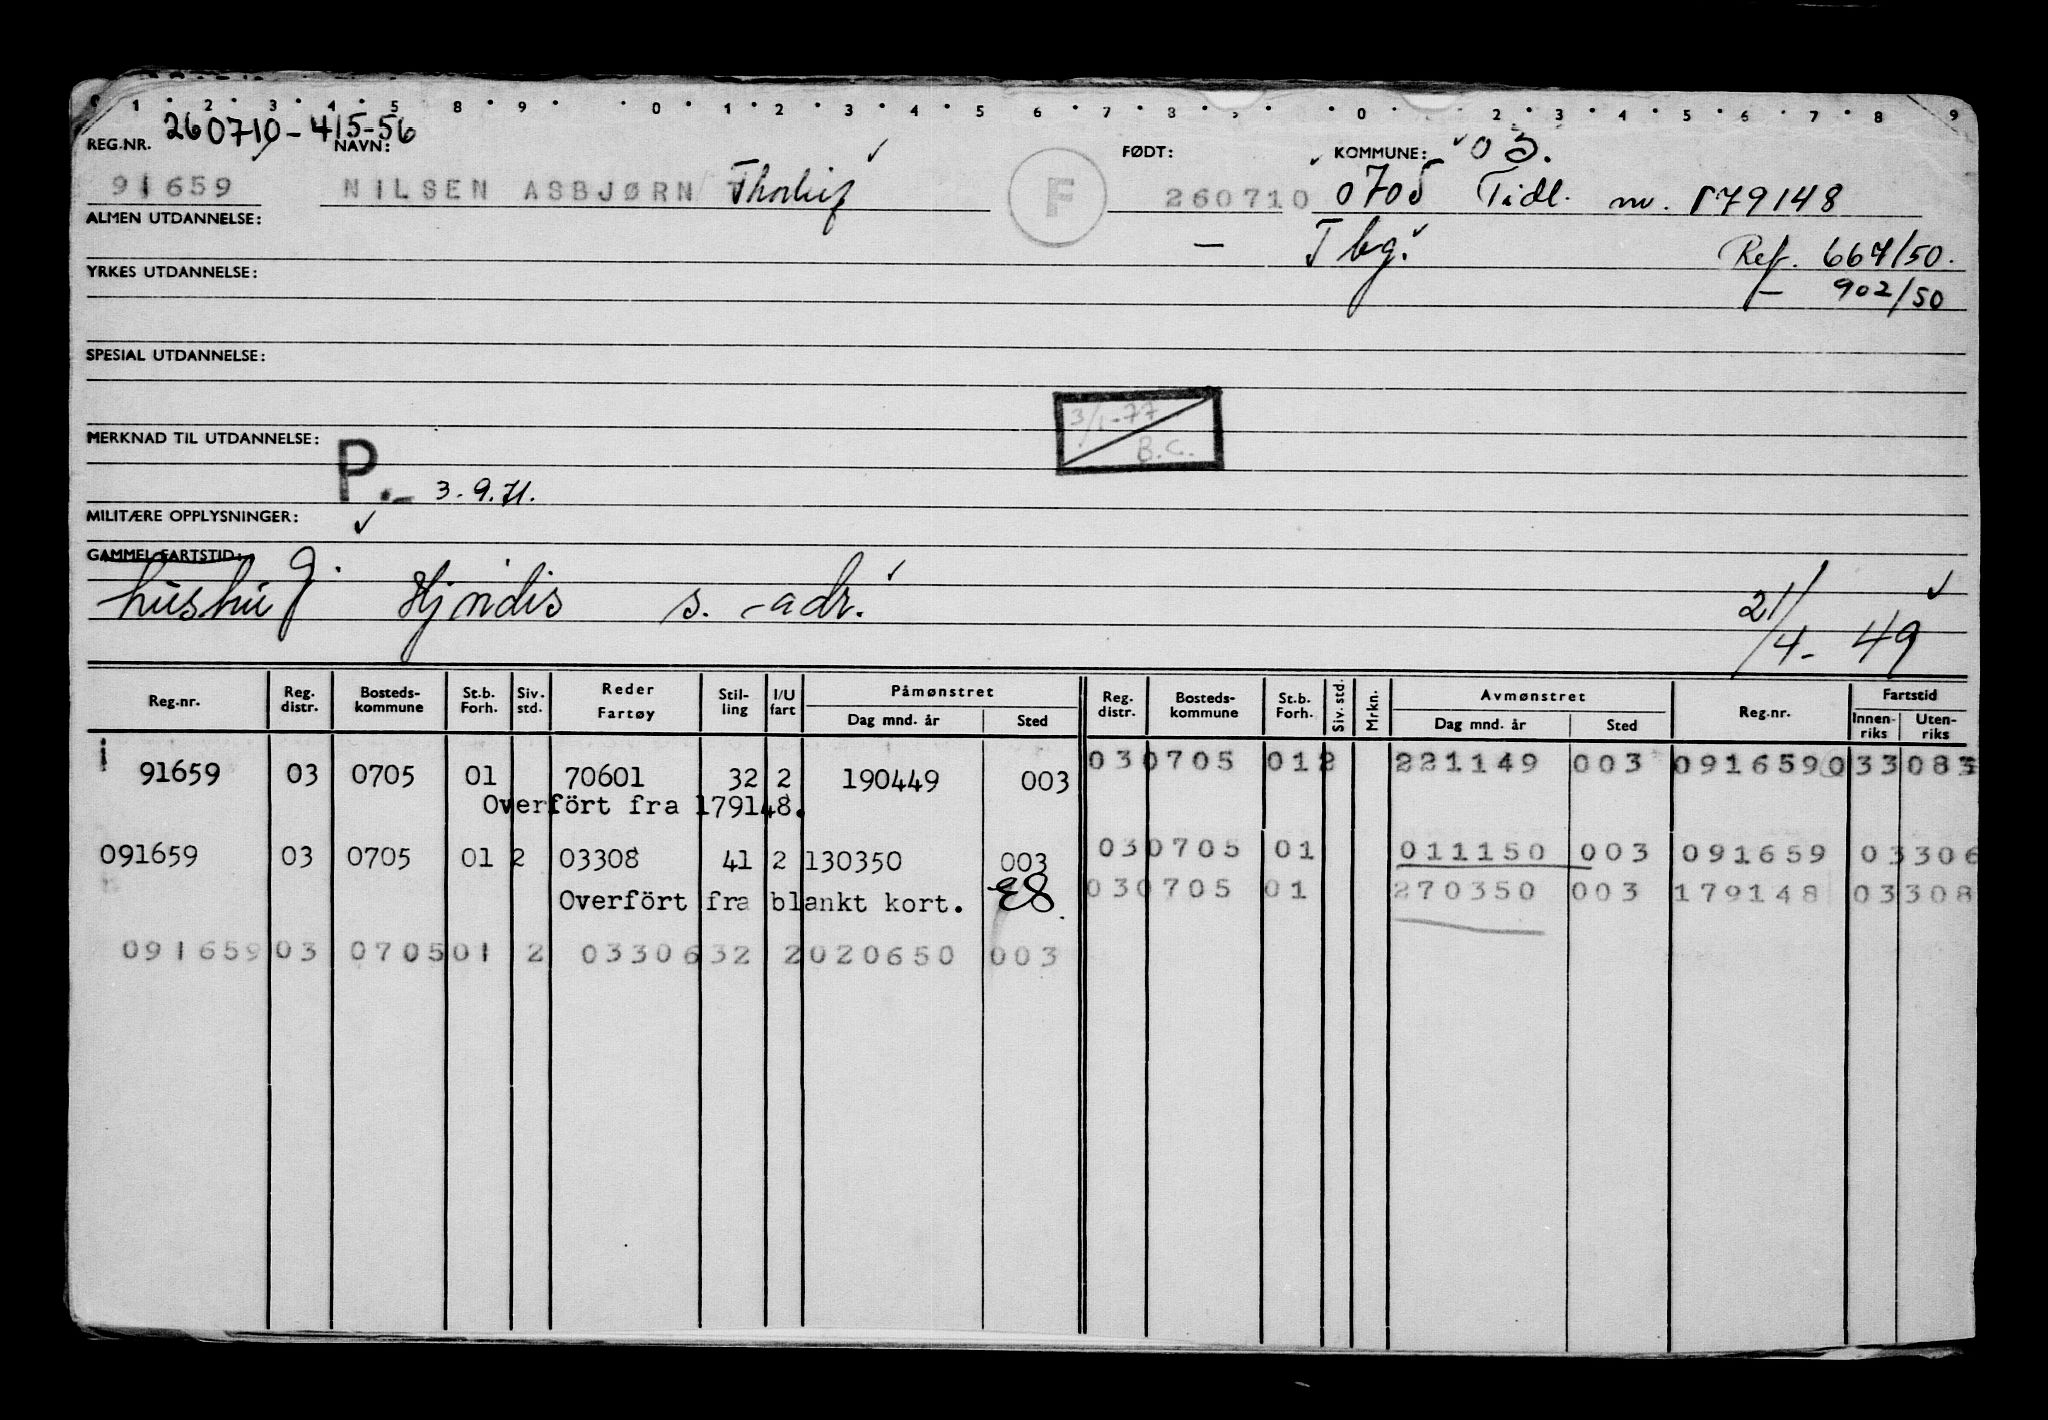 1 2 3 4 5 8 9 0 1 2 3 4 5 6 7 8 9 0 2 3 4 5 6 7 8 9
260710-415-56
REG.NR. NAVN: FØDT: KOMMUNE: 03.
91659 NILSEN ASBJØRN Thorleif F 260710 0705 Tidl. nr. 179148
ALMEN UTDANNELSE: — Tbg. Ref. 667/50.
YRKES UTDANNELSE: — 902/50
SPESIAL UTDANNELSE:
3/1-77
B.C.
MERKNAD TIL UTDANNELSE:
P.- 3.9.71.
MILITÆRE OPPLYSNINGER:
GAMMEL FARTSTID: g.
hushu Hjørdis s.-adr. 21/4-49
Reg.nr. Reg. distr. Bosteds-kommune St.b. Forh. Siv. std. Reder Fartøy Stil-ling I/U fart Påmønstret Dag mnd. år Sted Reg. distr. Bosteds-kommune St.b. Forh. Siv. std. Mrkn. Avmønstret Dag mnd. år Sted Reg.nr. Fartstid Innen-riks Uten-riks
91659 03 0705 01 70601 32 2 190449 003 03 0705 01 2 221149 003 091659 033083
Overført fra 179148.
091659 03 0705 01 2 03308 41 2 130350 003 03 0705 01 011150 003 091659 03306
Overfört fra blankt kort. 98 03 0705 01 270350 003 179148 03308
091659 03 0705 01 2 03306 32 2 020650 003